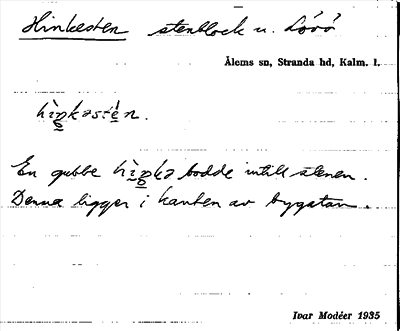 Hinkesten stenblock u. Lövö
Ålems sn, Stranda hd, Kalm. l.
hìŋkəstén.
En gubbe hìŋkə bodde intill stenen.
Denna ligger i kanten av bygatan.
Ivar Modéer 1935